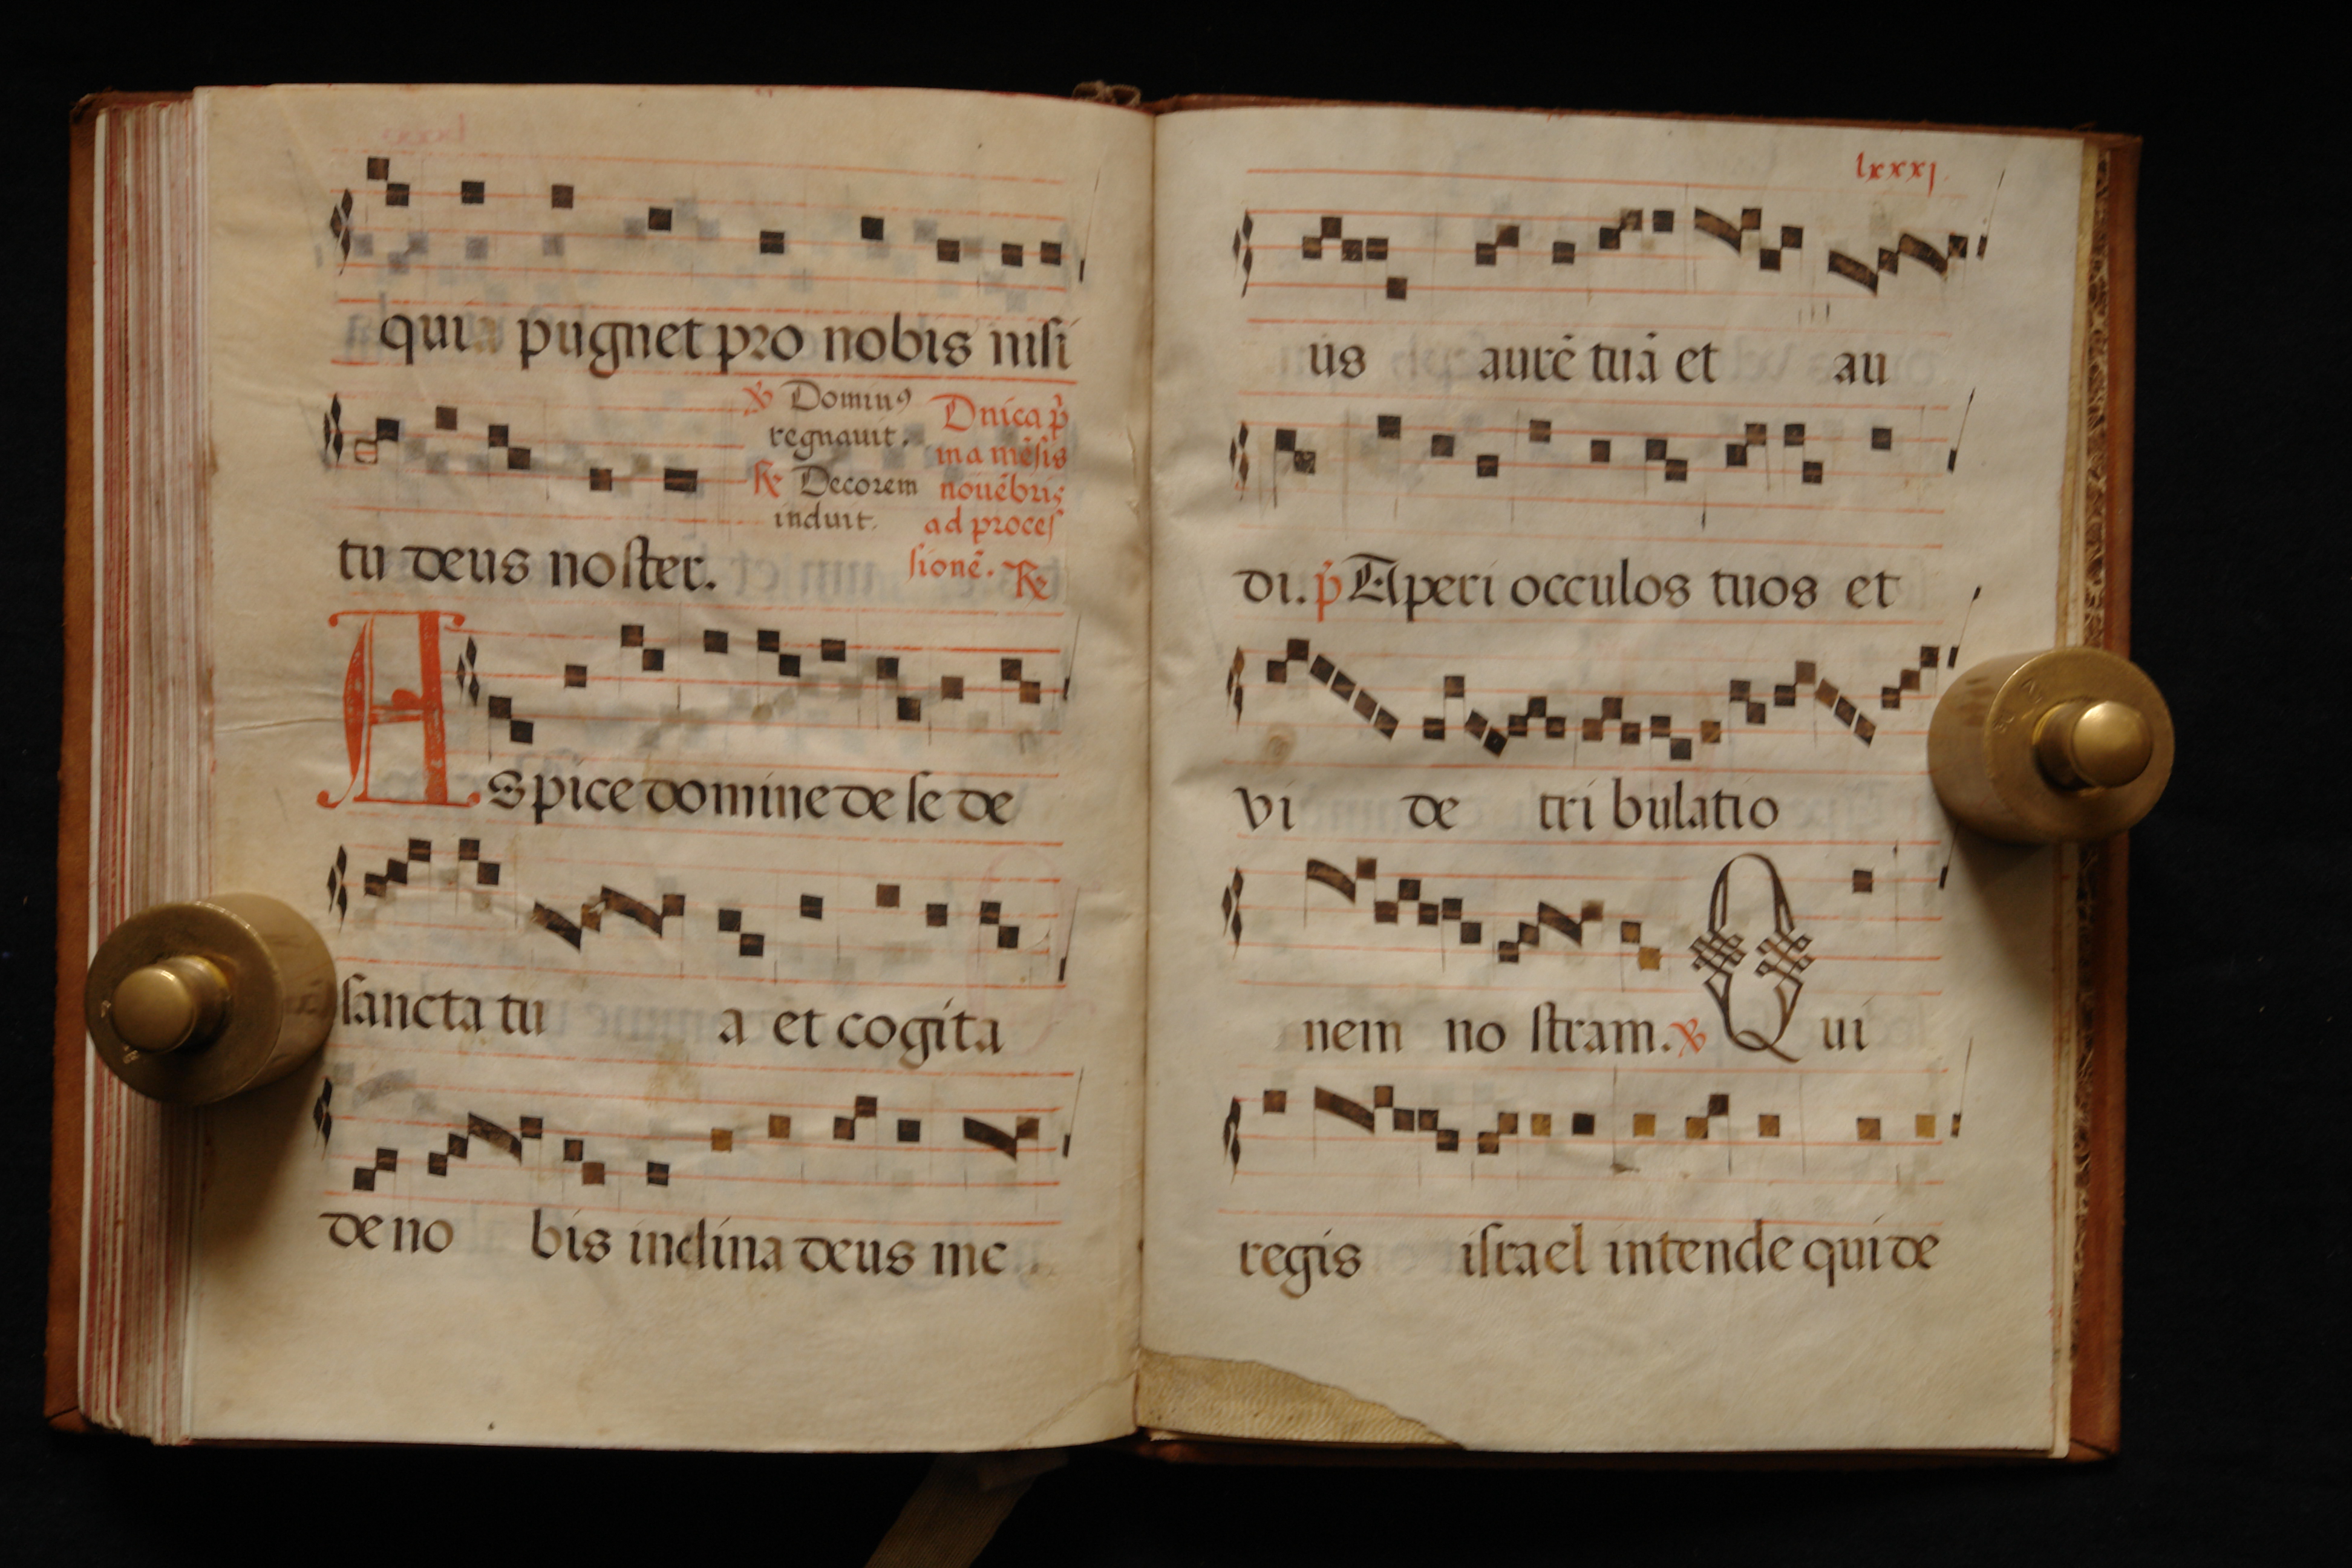 qui pugnet pro nobis nisi
℣ Dominꝰ
regnauit.
℟ Decorem
induit.
Dn̄ica p̄
ma mẽsis
nouẽbris
ad proceſ
ſionẽ. ℟
tu deus noſter.
Aspice domine de ſe de
ſancta tu a et cogita
de no bis inclina deus me
lxxxj
us aurẽ tuã et au
di. p̄ Aperi occulos tuos et
vi de tri bulatio
nem no ſtram. ℣ Qui
regis iſrael intende qui de